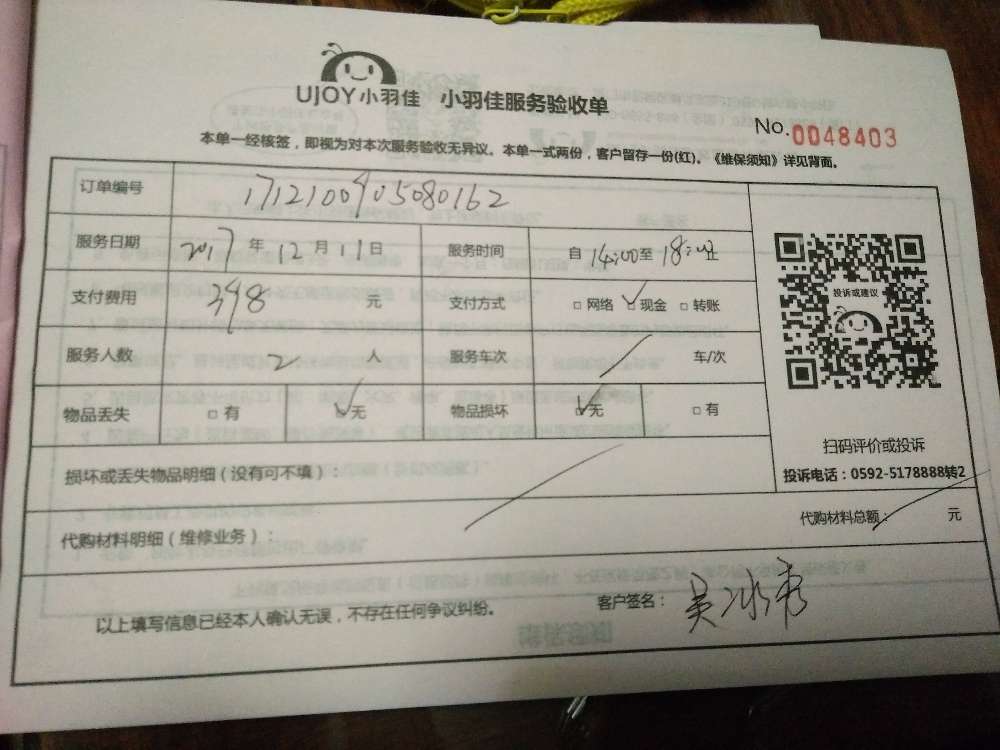 UJOY小羽佳 小羽佳服务验收单
No.0048403
本单一经核签，即视为对本次服务验收无异议。本单一式两份，客户留存一份(红)。《维保须知》详见背面。
订单编号 1712100905080162
服务日期 2017年12月11日 服务时间 自14:00至18:00止
支付费用 398 元 支付方式 □网络 ✓现金 □转账
服务人数 2 人 服务车次 / 车/次
物品丢失 □有 ✓无 物品损坏 ✓无 □有
投诉或建议
扫码评价或投诉
投诉电话：0592-5178888转2
损坏或丢失物品明细（没有可不填）：
代购材料明细（维修业务）： 代购材料总额： 元
以上填写信息已经本人确认无误，不存在任何争议纠纷。 客户签名：吴冰秀